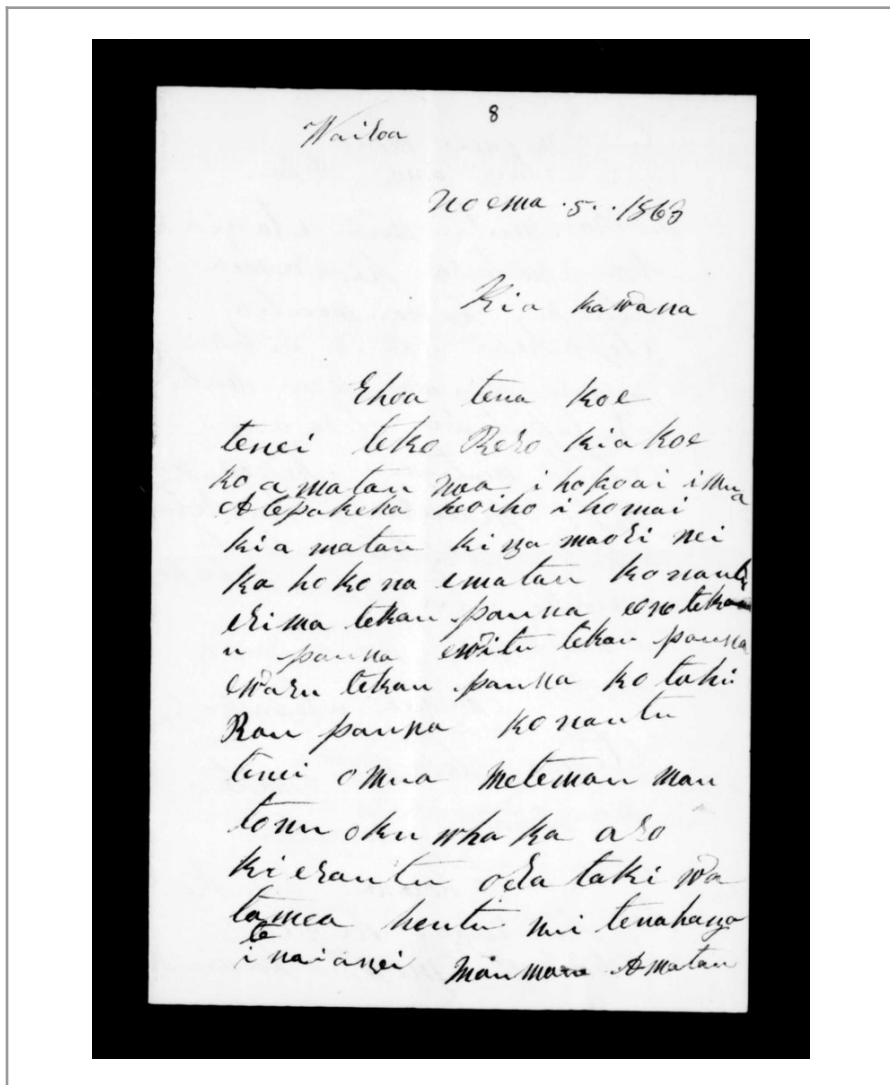 8
Wairoa
Noema . 5 . . 1863
Kia kawana
Ehoa tena koe
tenei teko Rero kia koe
ko a matau moa i hokoai i mua
Atepakeha keoiho i homai
kia matau ki nga maori nei
ka hokona ematau ko nautu
erima tekau pauna eono tekau
u pauna ewitu tekau pauna
ewaru tekau pauna ko tahi
Rau pauna ko nautu
tenei omua meteman mau
tonu oku wha ka aro
ki erautu ora taki wa
tamea heutu nui tenahanga
te
i naianei Mau mara Amatau